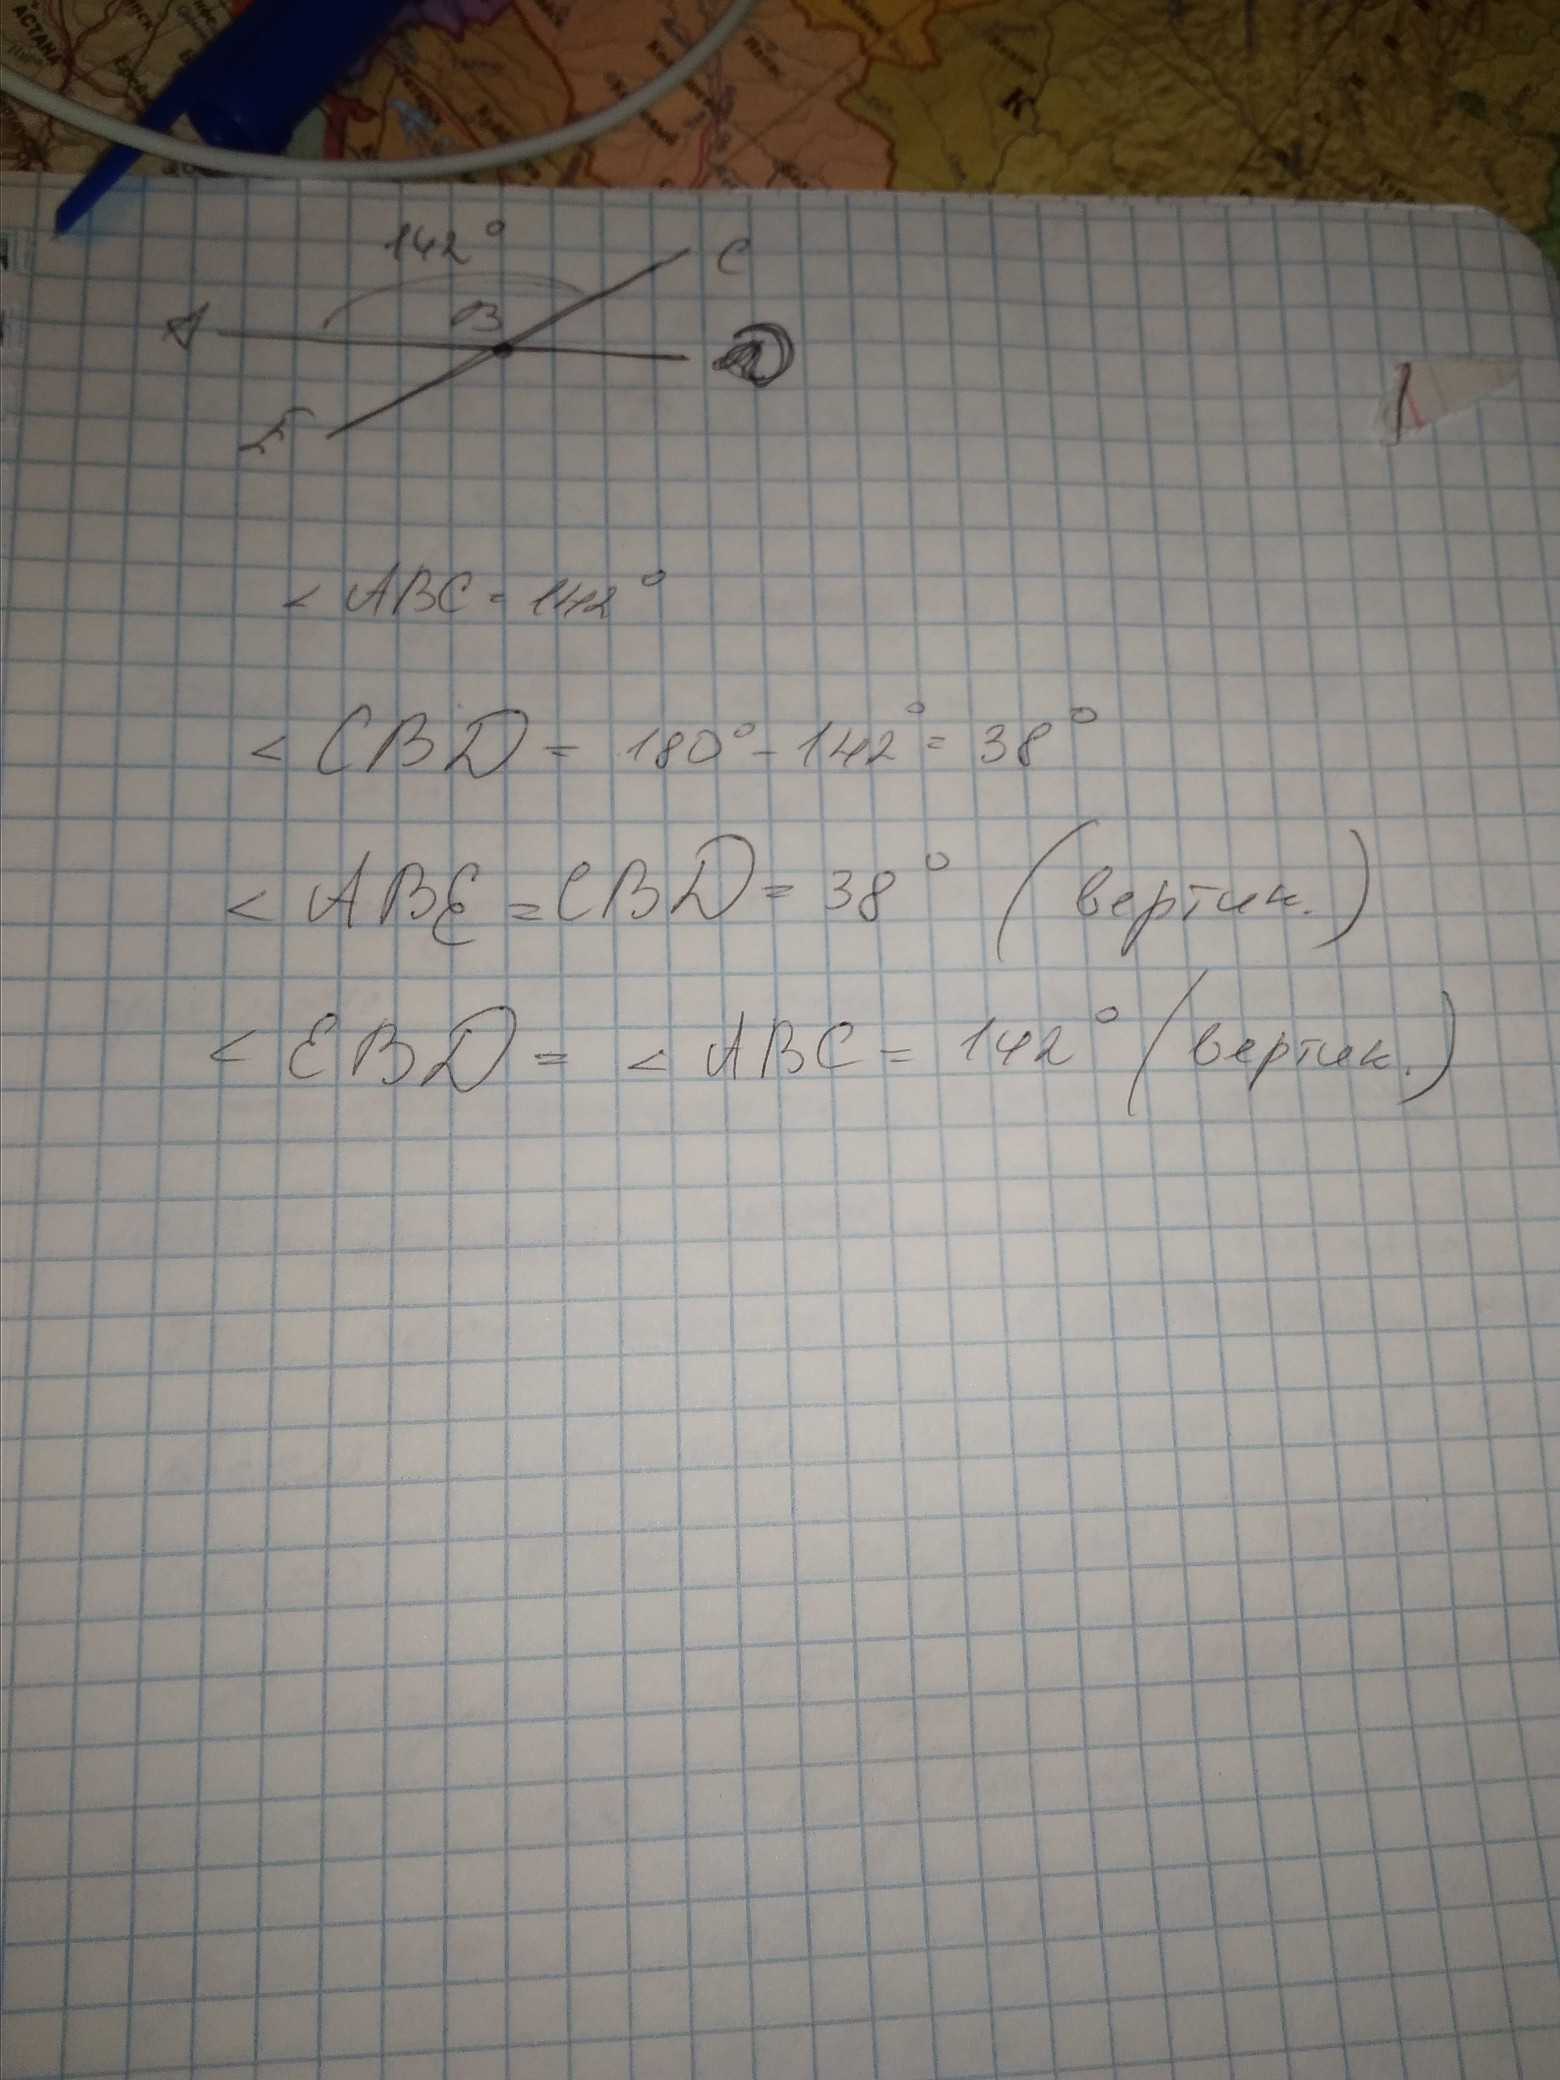 АСТАНА
142°
C
A
B
D
E
< ABC = 142°
< CBD = 180° - 142° = 38°
< ABE = CBD = 38° (вертик.)
< EBD = < ABC = 142° (вертик.)